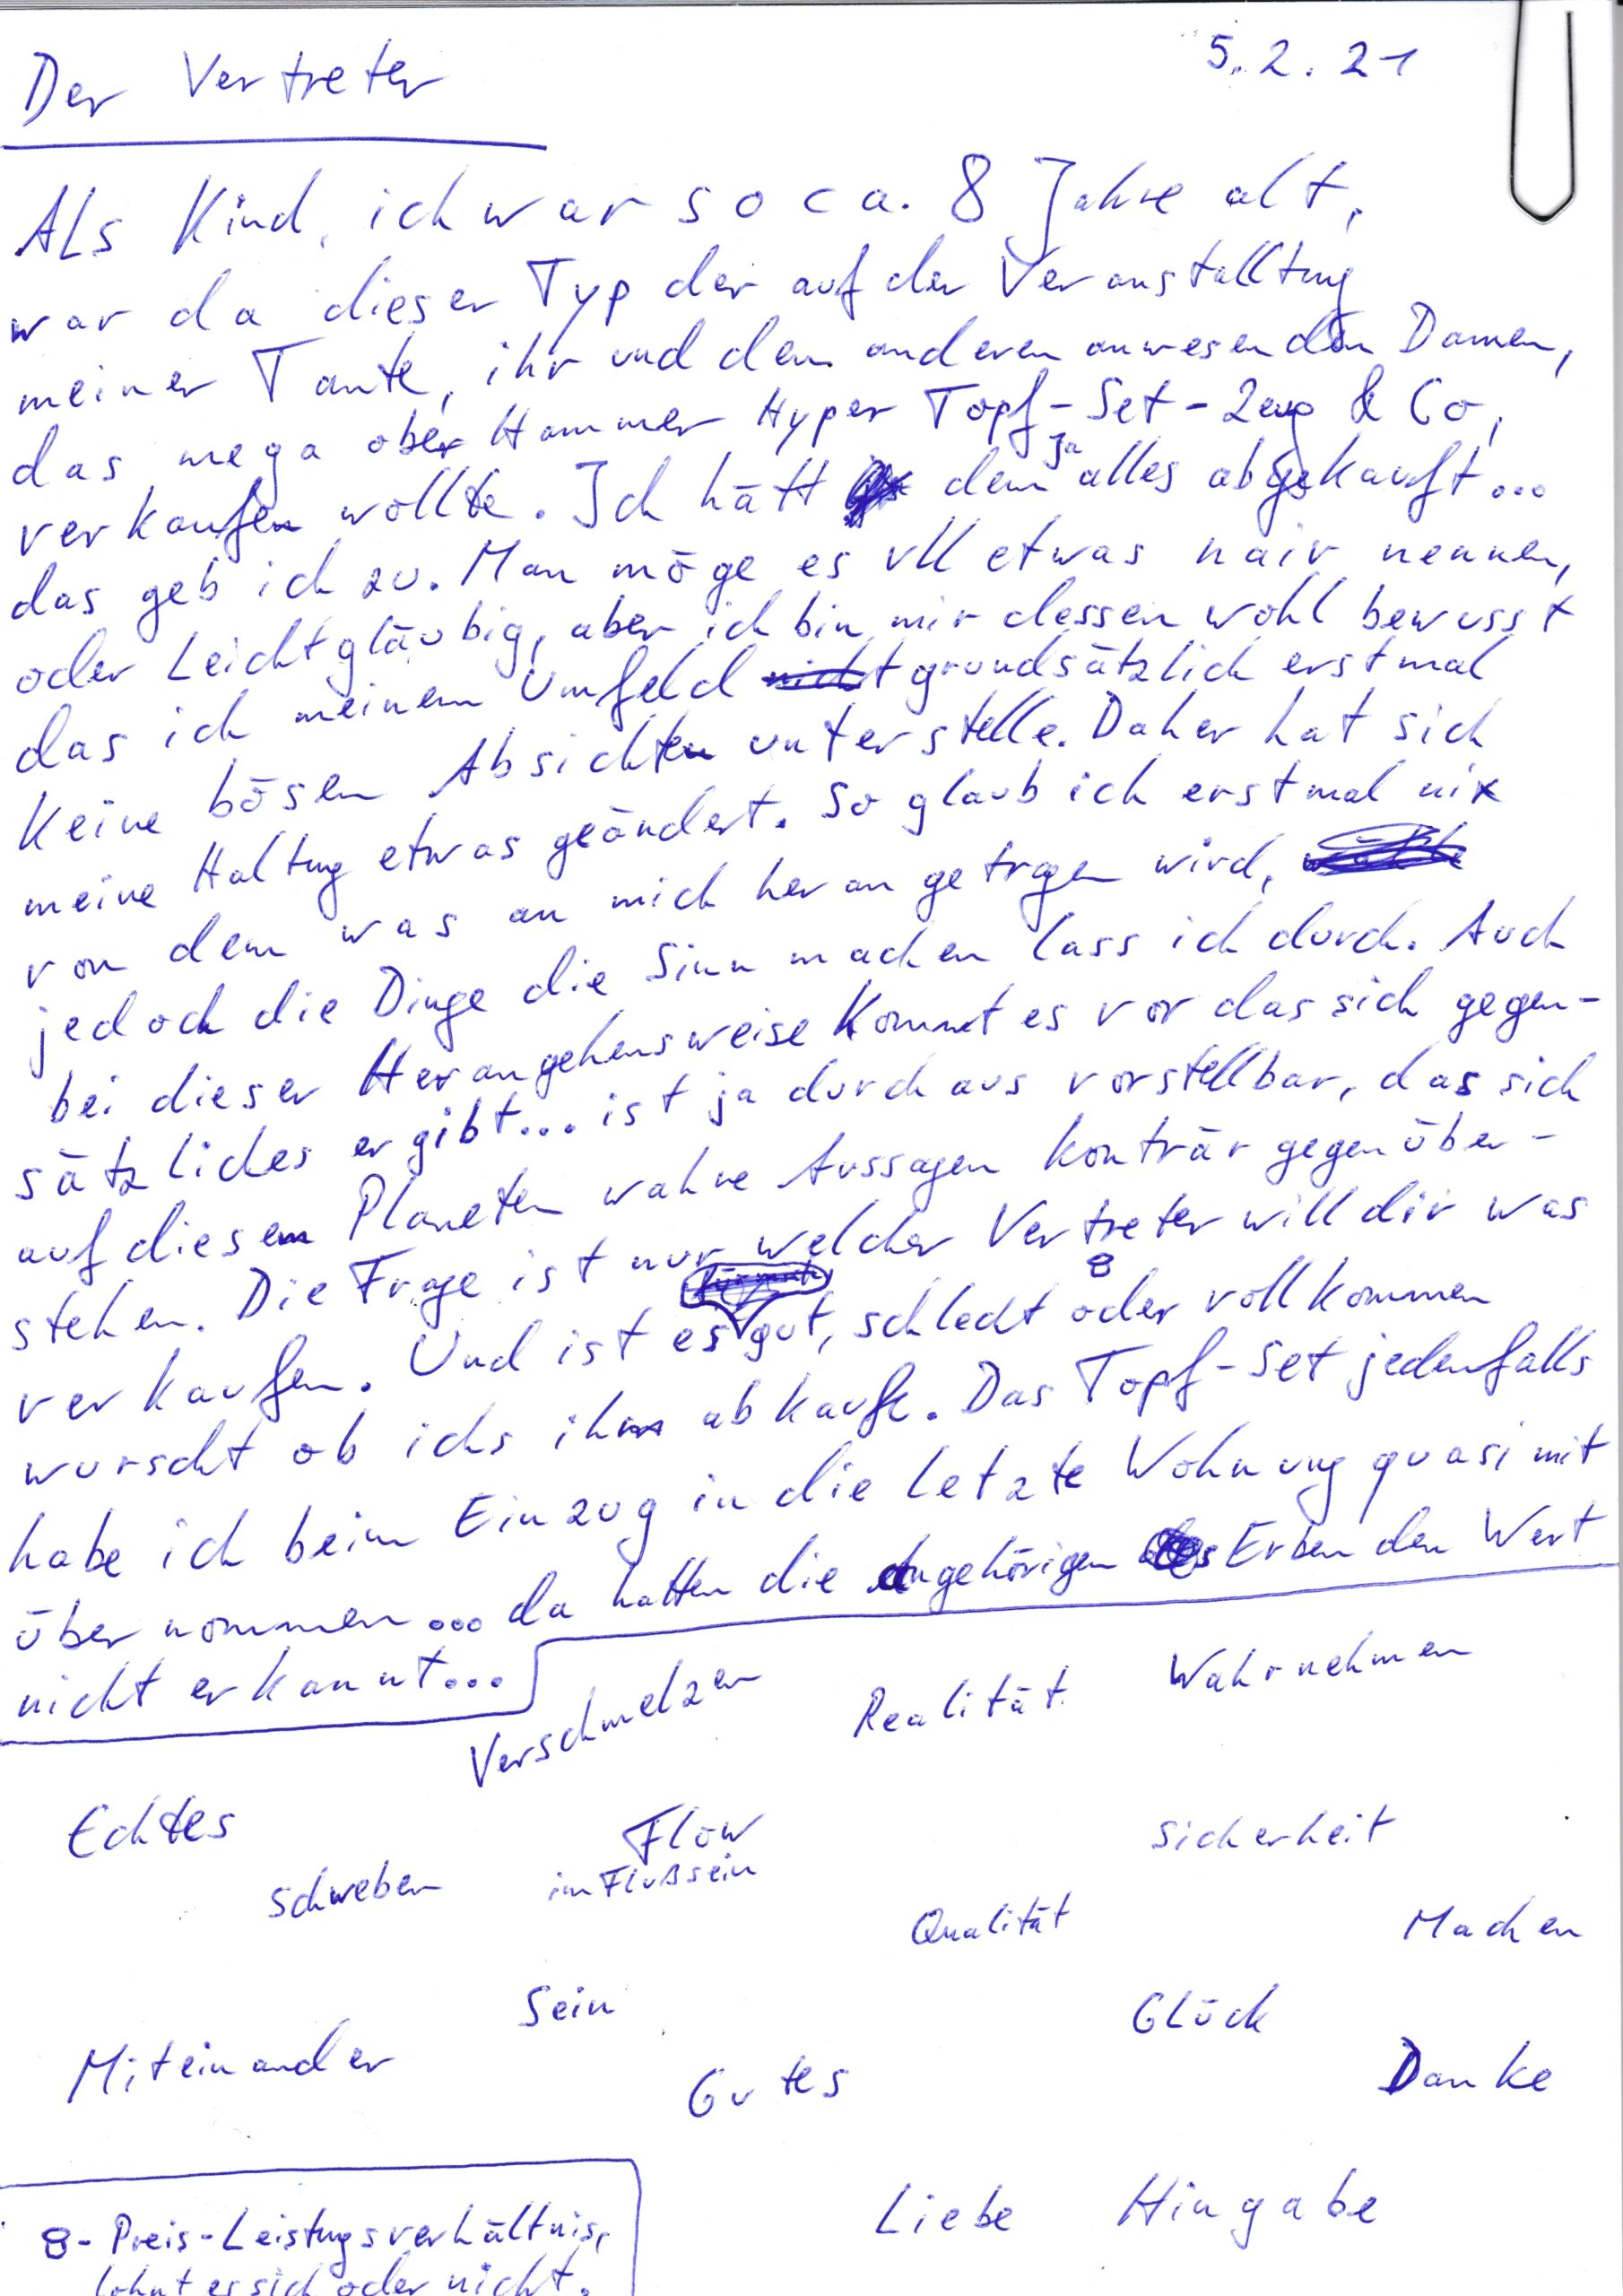 Der Vertreter
5.2.21
Als Kind, ich war so ca. 8 Jahre alt,
war da dieser Typ der auf der Veranstalltung
meiner Tante, ihr und den anderen anwesenden Damen,
das mega ober Hammer Hyper Topf-Set-Zeug & Co,
verkaufen wollte. Ich hätt dem ja alles abgekauft...
das geb ich zu. Man möge es vll etwas naiv nennen,
oder Leichtgläubig, aber ich bin mir dessen wohl bewusst
das ich meinem Umfeld grundsätzlich erstmal
keine bösen Absichten unterstelle. Daher hat sich
meine Haltung etwas geändert. So glaub ich erstmal nix
von dem was an mich herangetragen wird,
jedoch die Dinge die Sinn machen lass ich durch. Auch
bei dieser Herangehensweise kommt es vor das sich gegen-
sätzliches ergibt... ist ja durchaus vorstellbar, das sich
auf diesem Planeten wahre Aussagen konträr gegenüber-
stehen. Die Frage ist nur welcher Vertreter will dir was
verkaufen. Und ist es gut, schlecht 8 oder vollkommen
wurscht ob ichs ihm abkaufe. Das Topf-Set jedenfalls
habe ich beim Einzug in die letzte Wohnung quasi mit
übernommen... da hatten die angehörigen Erben den Wert
nicht erkannt...
Verschmelzen
Realität
Wahrnehmen
Echtes
Flow
Sicherheit
schweben
im Flußsein
Qualität
Machen
Sein
Glück
Miteinander
Gutes
Danke
Liebe
Hingabe
8- Preis-Leistungsverhältnis,
lohnt es sich oder nicht.